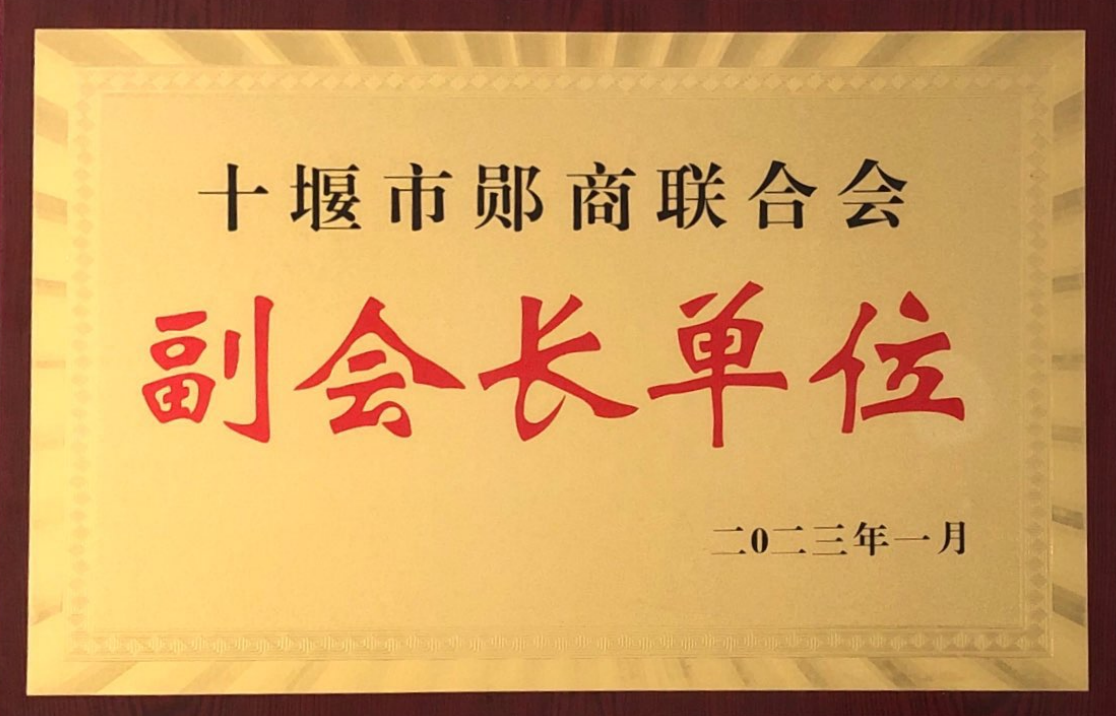 十堰市郧商联合会
副会长单位
二0二三年一月